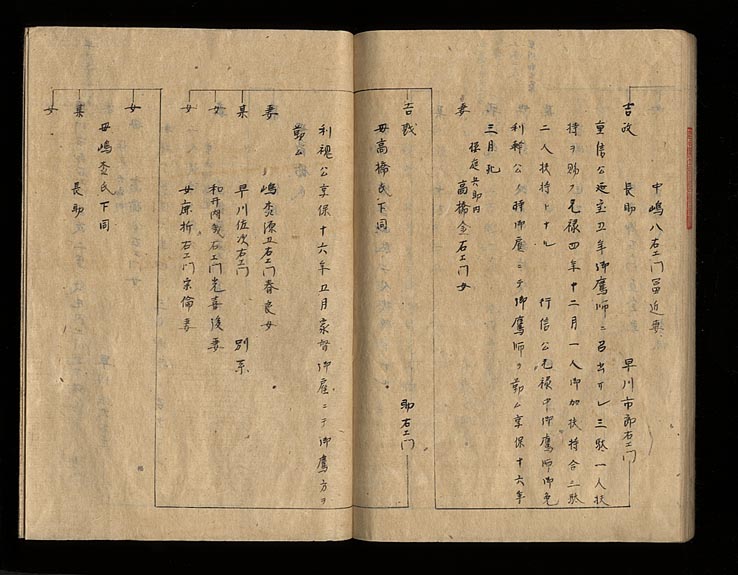 中嶋八右エ門冨近妻
吉政 長助 早川市郎右エ門
重信公延宝五年御鷹師ニ召出サレ三駄一人扶
持ヲ賜フ元禄四年十二月一人御加扶持合三駄
二人扶持トナル 行信公元禄中御鷹師御免
利幹公 御鷹師ヲ勤ム享保十六年
三月死
妻 高橋金右エ門女
吉 助右エ門
母高橋氏下同
利視公享保十六年五月家督 御鷹方ヲ
勤ム
妻 嶋 源五右エ門春良女
某 早川佐次右エ門 別系
女 和井内 右エ門光喜後妻
女 右エ門宗倫妻
女 母嶋 氏下同
某 長助
女